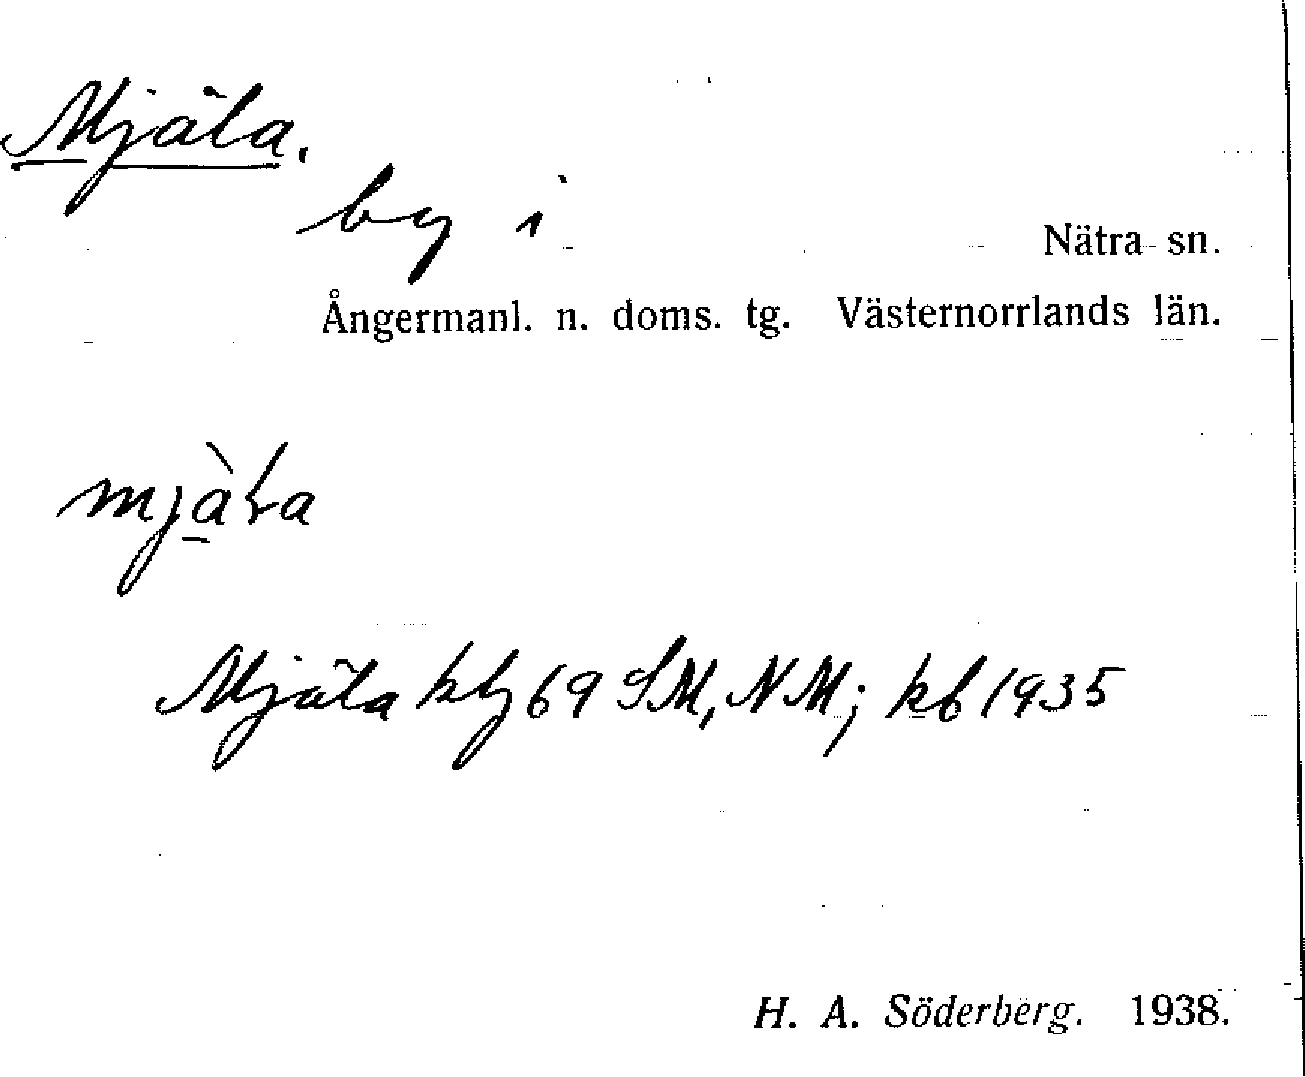 Mjäla.
by i
Nätra sn.
Ångermanl. n. doms. tg. Västernorrlands län.
Mjäla kbg 69 SM, NM; kb 1935
H. A. Söderberg. 1938.